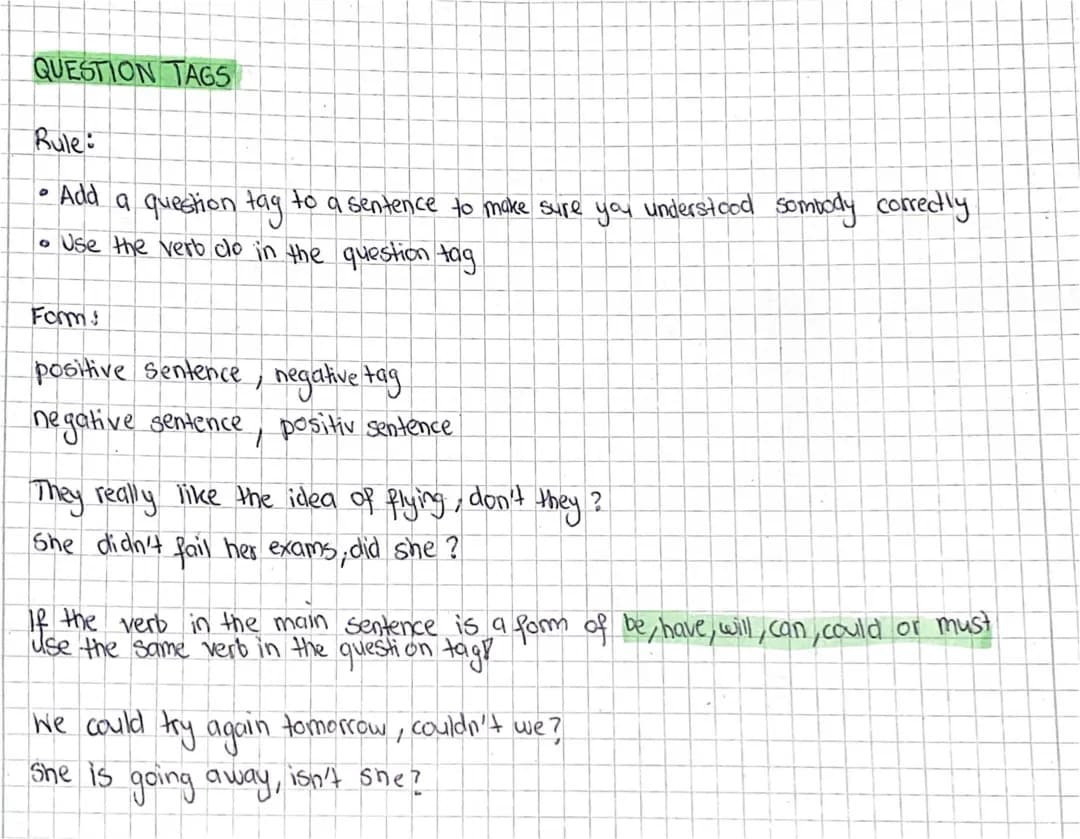 QUESTION TAGS
Rule:
• Add a question tag to a sentence to make sure you understood sombody correctly
• Use the verb do in the question tag
Form:
positive sentence, negative tag
negative sentence, positiv sentence
They really like the idea of flying, don't they?
She didn't fail her exams, did she?
If the verb in the main sentence is a form of be, have, will, can, could or must
use the same verb in the question tag!
We could try again tomorrow, couldn't we?
She is going away, isn't she?